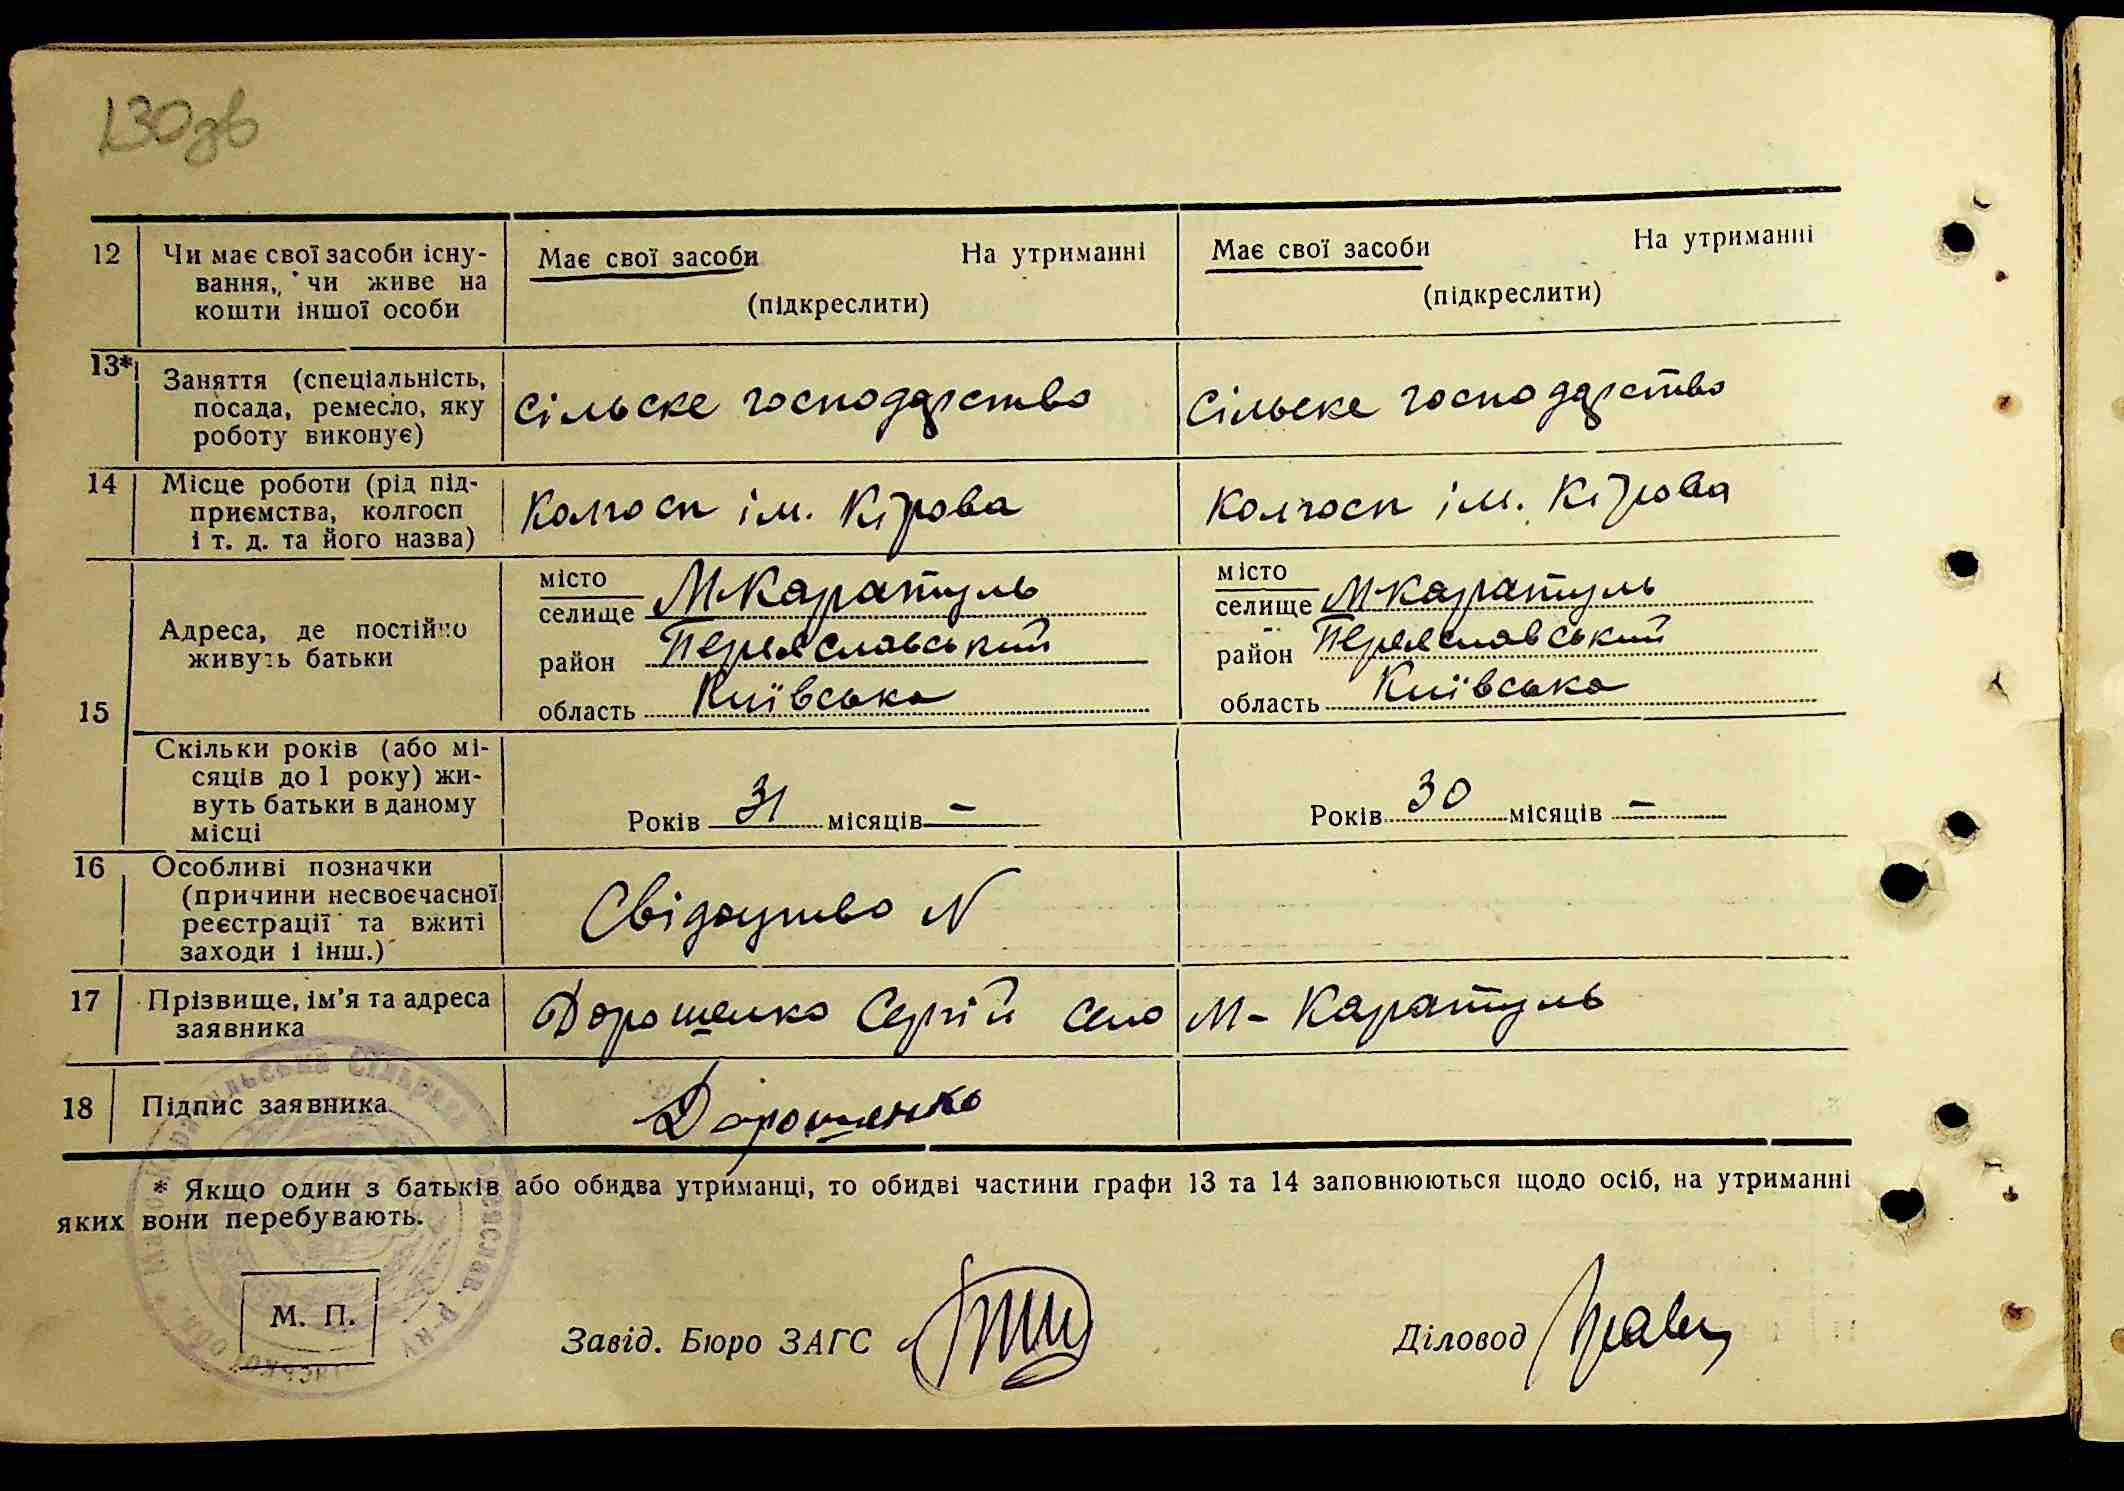 130зв
12 Чи має свої засоби існу- Має свої засоби На утриманні Має свої засоби На утриманні
вання, чи живе на (підкреслити) (підкреслити)
кошти іншої особи
13* Заняття (спеціальність, сільське господарство сільське господарство
посада, ремесло, яку
роботу виконує)
14 Місце роботи (рід під- Колгосп ім. Кірова Колгосп ім. Кірова
приємства, колгосп
і т. д. та його назва)
15 Адреса, де постійно місто селище М Каратуль місто селище М Каратуль
живуть батьки район Переяславський район Переяславський
область Київська область Київська
Скільки років (або мі-
сяців до 1 року) жи-
вуть батьки в даному Років 31 місяців – Років 30 місяців –
місці
16 Особливі позначки
(причини несвоєчасної Свідоцтво N
реєстрації та вжиті
заходи і інш.)
17 Прізвище, ім'я та адреса Дорошенко Сергій село М-Каратуль
заявника
18 Підпис заявника Дорошенко
* Якщо один з батьків або обидва утриманці, то обидві частини графи 13 та 14 заповнюються щодо осіб, на утриманні
яких вони перебувають.
М. П.
Завід. Бюро ЗАГС Діловод